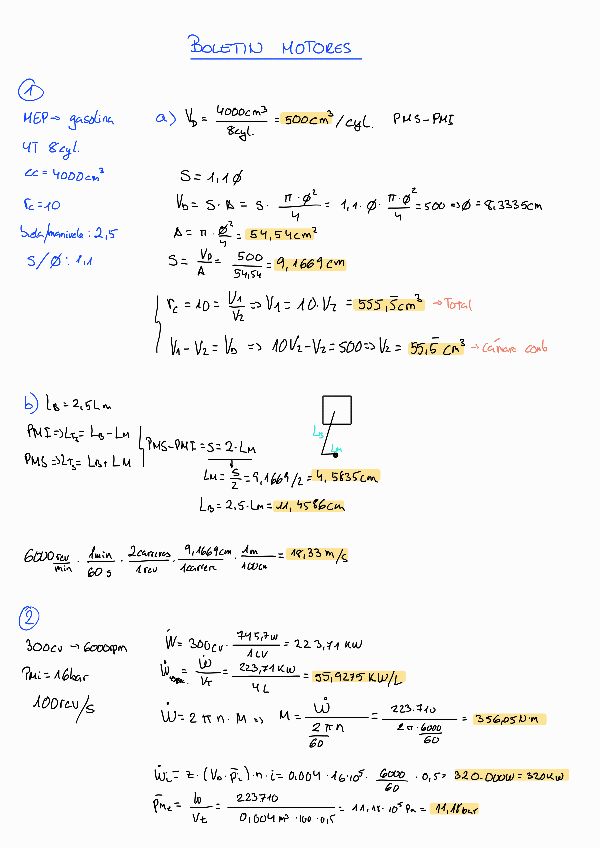 BOLETIN MOTORES
①
MEP → gasolina
4T 8cyl.
cc = 4000cm³
rc = 10
biela/manivela : 2,5
S/Ø : 1,1
a) V_D = 4000cm³ / 8cyl. = 500cm³/cyl. PMS-PMI
S = 1,1 Ø
V_D = S · A = S · π·Ø²/4 = 1,1 · Ø · π·Ø²/4 = 500 ⇒ Ø = 8,3335cm
A = π · Ø²/4 = 54,54cm²
S = V_D/A = 500/54,54 = 9,1669cm
rc = 10 = V1/V2 ⇒ V1 = 10·V2 = 555,5cm³ → Total
V1 - V2 = V_D ⇒ 10V2 - V2 = 500 ⇒ V2 = 55,5 cm³ → Cámara comb
b) L_B = 2,5 L_M
PMI ⇒ L_T2 = L_B - L_M
PMS ⇒ L_TS = L_B + L_M
PMS-PMI = S = 2·L_M
L_B
L_M
L_M = S/2 = 9,1669/2 = 4,5835cm
L_B = 2,5·L_M = 11,4586cm
6000 rev/min · 1min/60s · 2carreras/1rev · 9,1669cm/1carrera · 1m/100cm = 18,33 m/s
②
300cv → 6000rpm
Pmi = 16bar
100rev/s
Ẇ = 300cv · 745,7W/1CV = 223,71 KW
Ẇ = Ẇ/V_T = 223,71KW/4L = 55,9275 KW/L
Ẇ = 2πn·M ⇒ M = Ẇ / (2πn/60) = 223.710 / (2π·6000/60) = 356,05N·m
Ẇi = z·(V_D·p̄i)·n·i = 0,004·16·10⁵ · 6000/60 · 0,5 = 320.000W = 320KW
p̄me = Ẇ/Vt = 223710 / (0,004m³·100·0,5) = 11,18·10⁵ Pa = 11,18bar